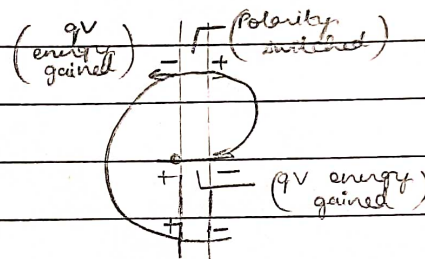 (qV energy gained)
(Polarity switched)
- +
+ -
(qV energy gained)
+ -